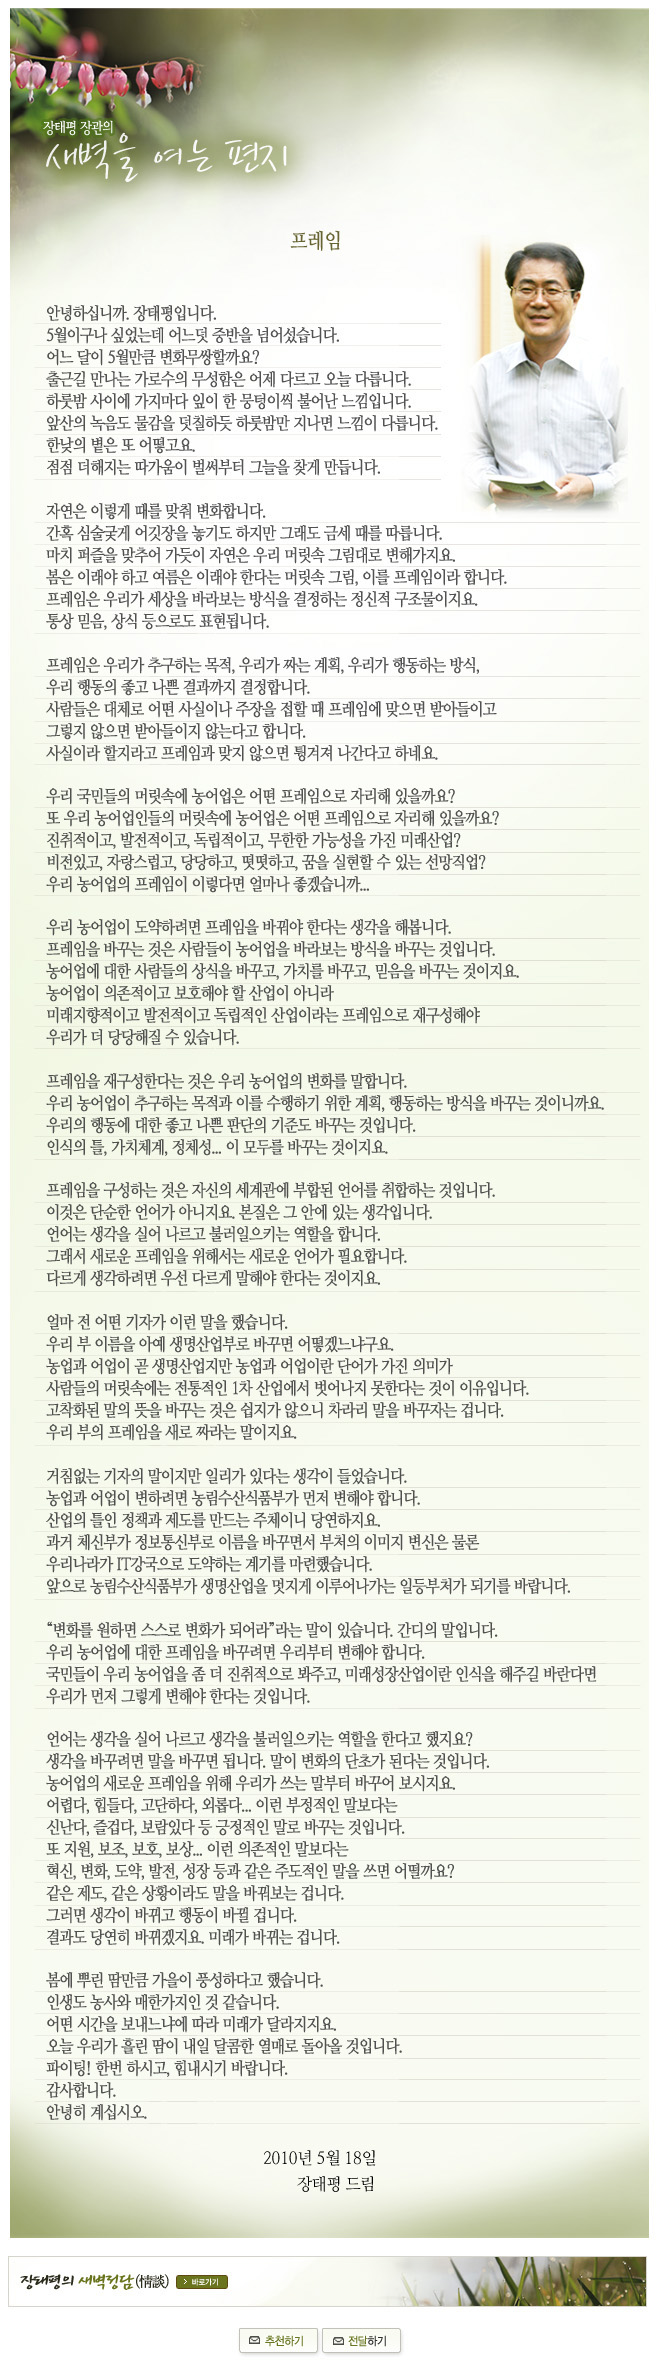 장태평 장관의
새벽을 여는 편지
프레임
안녕하십니까. 장태평입니다.
5월이구나 싶었는데 어느덧 중반을 넘어섰습니다.
어느 달이 5월만큼 변화무쌍할까요?
출근길 만나는 가로수의 무성함은 어제 다르고 오늘 다릅니다.
하룻밤 사이에 가지마다 잎이 한 뭉텅이씩 불어난 느낌입니다.
앞산의 녹음도 물감을 덧칠하듯 하룻밤만 지나면 느낌이 다릅니다.
한낮의 볕은 또 어떻고요.
점점 더해지는 따가움이 벌써부터 그늘을 찾게 만듭니다.
자연은 이렇게 때를 맞춰 변화합니다.
간혹 심술궂게 어깃장을 놓기도 하지만 그래도 금세 때를 따릅니다.
마치 퍼즐을 맞추어 가듯이 자연은 우리 머릿속 그림대로 변해가지요.
봄은 이래야 하고 여름은 이래야 한다는 머릿속 그림, 이를 프레임이라 합니다.
프레임은 우리가 세상을 바라보는 방식을 결정하는 정신적 구조물이지요.
통상 믿음, 상식 등으로도 표현됩니다.
프레임은 우리가 추구하는 목적, 우리가 짜는 계획, 우리가 행동하는 방식,
우리 행동의 좋고 나쁜 결과까지 결정합니다.
사람들은 대체로 어떤 사실이나 주장을 접할 때 프레임에 맞으면 받아들이고
그렇지 않으면 받아들이지 않는다고 합니다.
사실이라 할지라고 프레임과 맞지 않으면 튕겨져 나간다고 하네요.
우리 국민들의 머릿속에 농어업은 어떤 프레임으로 자리해 있을까요?
또 우리 농어업인들의 머릿속에 농어업은 어떤 프레임으로 자리해 있을까요?
진취적이고, 발전적이고, 독립적이고, 무한한 가능성을 가진 미래산업?
비전있고, 자랑스럽고, 당당하고, 떳떳하고, 꿈을 실현할 수 있는 선망직업?
우리 농어업의 프레임이 이렇다면 얼마나 좋겠습니까...
우리 농어업이 도약하려면 프레임을 바꿔야 한다는 생각을 해봅니다.
프레임을 바꾸는 것은 사람들이 농어업을 바라보는 방식을 바꾸는 것입니다.
농어업에 대한 사람들의 상식을 바꾸고, 가치를 바꾸고, 믿음을 바꾸는 것이지요.
농어업이 의존적이고 보호해야 할 산업이 아니라
미래지향적이고 발전적이고 독립적인 산업이라는 프레임으로 재구성해야
우리가 더 당당해질 수 있습니다.
프레임을 재구성한다는 것은 우리 농어업의 변화를 말합니다.
우리 농어업이 추구하는 목적과 이를 수행하기 위한 계획, 행동하는 방식을 바꾸는 것이니까요.
우리의 행동에 대한 좋고 나쁜 판단의 기준도 바꾸는 것입니다.
인식의 틀, 가치체계, 정체성... 이 모두를 바꾸는 것이지요.
프레임을 구성하는 것은 자신의 세계관에 부합된 언어를 취합하는 것입니다.
이것은 단순한 언어가 아니지요. 본질은 그 안에 있는 생각입니다.
언어는 생각을 실어 나르고 불러일으키는 역할을 합니다.
그래서 새로운 프레임을 위해서는 새로운 언어가 필요합니다.
다르게 생각하려면 우선 다르게 말해야 한다는 것이지요.
얼마 전 어떤 기자가 이런 말을 했습니다.
우리 부 이름을 아예 생명산업부로 바꾸면 어떻겠느냐구요.
농업과 어업이 곧 생명산업지만 농업과 어업이란 단어가 가진 의미가
사람들의 머릿속에는 전통적인 1차 산업에서 벗어나지 못한다는 것이 이유입니다.
고착화된 말의 뜻을 바꾸는 것은 쉽지가 않으니 차라리 말을 바꾸자는 겁니다.
우리 부의 프레임을 새로 짜라는 말이지요.
거침없는 기자의 말이지만 일리가 있다는 생각이 들었습니다.
농업과 어업이 변하려면 농림수산식품부가 먼저 변해야 합니다.
산업의 틀인 정책과 제도를 만드는 주체이니 당연하지요.
과거 체신부가 정보통신부로 이름을 바꾸면서 부처의 이미지 변신은 물론
우리나라가 IT강국으로 도약하는 계기를 마련했습니다.
앞으로 농림수산식품부가 생명산업을 멋지게 이루어나가는 일등부처가 되기를 바랍니다.
“변화를 원하면 스스로 변화가 되어라”라는 말이 있습니다. 간디의 말입니다.
우리 농어업에 대한 프레임을 바꾸려면 우리부터 변해야 합니다.
국민들이 우리 농어업을 좀 더 진취적으로 봐주고, 미래성장산업이란 인식을 해주길 바란다면
우리가 먼저 그렇게 변해야 한다는 것입니다.
언어는 생각을 실어 나르고 생각을 불러일으키는 역할을 한다고 했지요?
생각을 바꾸려면 말을 바꾸면 됩니다. 말이 변화의 단초가 된다는 것입니다.
농어업의 새로운 프레임을 위해 우리가 쓰는 말부터 바꾸어 보시지요.
어렵다, 힘들다, 고단하다, 외롭다... 이런 부정적인 말보다는
신난다, 즐겁다, 보람있다 등 긍정적인 말로 바꾸는 것입니다.
또 지원, 보조, 보호, 보상... 이런 의존적인 말보다는
혁신, 변화, 도약, 발전, 성장 등과 같은 주도적인 말을 쓰면 어떨까요?
같은 제도, 같은 상황이라도 말을 바꿔보는 겁니다.
그러면 생각이 바뀌고 행동이 바뀔 겁니다.
결과도 당연히 바뀌겠지요. 미래가 바뀌는 겁니다.
봄에 뿌린 땀만큼 가을이 풍성하다고 했습니다.
인생도 농사와 매한가지인 것 같습니다.
어떤 시간을 보내느냐에 따라 미래가 달라지지요.
오늘 우리가 흘린 땀이 내일 달콤한 열매로 돌아올 것입니다.
파이팅! 한번 하시고, 힘내시기 바랍니다.
감사합니다.
안녕히 계십시오.
2010년 5월 18일
장태평 드림
장태평의 새벽정담(情談) 바로가기
추천하기 전달하기